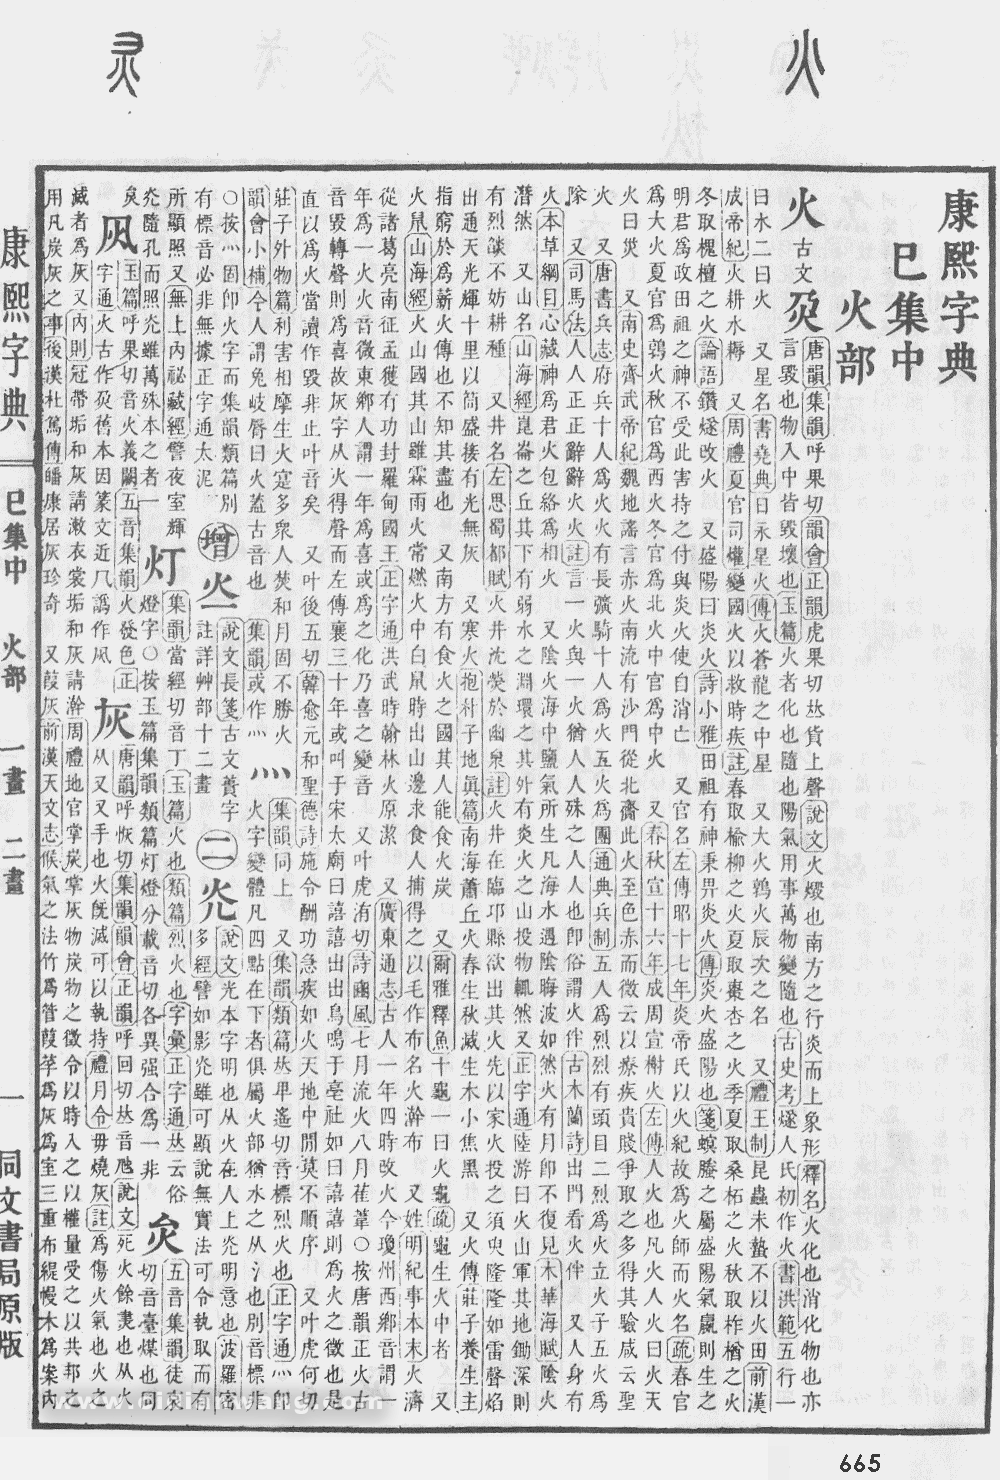 火
災
康熙字典
巳集中
火部
火
古文𤆄
唐韻集韻呼果切韻會正韻虎果切𠀤貨上聲說文火燬也南方之行炎而上象形釋名火化也消化物也亦
言毀也物入中皆毀壞也玉篇火者化也隨也陽氣用事萬物變隨也古史考燧人氏初作火書洪範五行一
曰水二曰火 又星名書堯典日永星火傳火蒼龍之中星 又大火鶉火辰次之名 又禮王制昆蟲未蟄不以火田前漢
成帝紀火耕水耨 又周禮夏官司爟變國火以救時疾註春取楡柳之火夏取棗杏之火季夏取桑柘之火秋取柞楢之火
冬取槐檀之火論語鑽燧改火 又盛陽曰炎火詩小雅田祖有神秉畀炎火傳炎火盛陽也箋螟螣之屬盛陽氣嬴則生之
明君爲政田祖之神不受此害持之付與炎火使自消亡 又官名左傳昭十七年炎帝氏以火紀故爲火師而火名疏春官
爲大火夏官爲鶉火秋官爲西火冬官爲北火中官爲中火 又春秋宣十六年成周宣榭火左傳人火也凡火人火曰火天
火曰災 又南史齊武帝紀魏地謠言赤火南流有沙門從北齎此火至色赤而微云以療疾貴賤爭取之多得其驗咸云聖
火 又唐書兵志府兵十人爲火火有長彍騎十人爲火五火爲團通典兵制五人爲烈烈有頭目二烈爲火立火子五火爲
隊 又司馬法人人正正辭辭火火註言一火與一火猶人人殊之人人也卽俗謂火伴古木蘭詩出門看火伴 又人身有
火本草綱目心藏神爲君火包絡爲相火 又陰火海中鹽氣所生凡海水遇陰晦波如然火有月卽不復見木華海賦陰火
潛然 又山名山海經崑崙之丘其下有弱水之淵環之其外有炎火之山投物輒然又正字通陸游曰火山軍其地鋤深則
有烈燄不妨耕種 又井名左思蜀都賦火井沈熒於幽泉註火井在臨邛縣欲出其火先以家火投之須臾隆隆如雷聲焰
出通天光輝十里以筒盛接有光無灰 又寒火抱朴子地眞篇南海蕭丘火春生秋滅生木小焦黑 又火傳莊子養生主
指窮於爲薪火傳也不知其盡也 又南方有食火之國其人能食火炭 又爾雅釋魚十龜一曰火龜疏龜生火中者 又
火鼠山海經火山國其山雖霖雨火常燃火中白鼠時出山邊求食人捕得之以毛作布名火澣布 又姓明紀事本末火濟
從諸葛亮南征孟獲有功封羅甸國王正字通洪武時翰林火原潔 又廣東通志古人一年四時改火今瓊州西鄉音謂一
年爲一火火音微東鄉人謂一年爲喜或爲之化乃喜之變音 又叶虎洧切詩豳風七月流火八月萑葦○按唐韻正火古
音毀轉聲則爲喜故灰字从火得聲而左傳襄三十年或叫于宋太廟曰譆譆出出鳥鳴于亳社如曰譆譆則爲火之徵也是
直以爲火當讀作毀非止叶音矣 又叶後五切韓愈元和聖德詩施令酬功急疾如火天地中閒莫不順序 又叶虎何切
莊子外物篇利害相摩生火寔多衆人焚和月固不勝火
韻會小補今人謂兔岐脣曰火蓋古音也 集韻或作灬
灬
集韻同上 又集韻類篇𠀤卑遙切音標烈火也正字通灬卽
火字變體凡四點在下者俱屬火部猶水之从氵也別音標非
○按灬固卽火字而集韻類篇別
有標音必非無據正字通太泥
增
說文長箋古文蕢字
註詳艸部十二畫
二
灮
說文光本字明也从火在人上灮明意也波羅密
多經譬如影灮雖可顯說無實法可令執取而有
所顯照又無上內祕藏經譬夜室輝
灮隨孔而照灮雖萬殊本之者一
灯
集韻當經切音丁玉篇火也類篇烈火也字彙正字通𠀤云俗
燈字○按玉篇集韻類篇灯燈分載音切各異强合爲一非
五音集韻徒哀
切音臺煤也同
炱
玉篇呼果切音火義闕五音集韻火發色正
字通火古作𤆄舊本因篆文近𠘨譌作
灰
唐韻呼恢切集韻韻會正韻呼回切𠀤音虺說文死火餘㶳也从火
从又又手也火旣滅可以執持禮月令毋燒灰註爲傷火氣也火之
滅者爲灰又內則冠帶垢和灰請漱衣裳垢和灰請澣周禮地官掌炭掌灰物炭物之徵令以時入之以權量受之以共邦之
用凡炭灰之事後漢杜篤傳燔康居灰珍奇 又葭灰前漢天文志候氣之法竹爲管葭莩爲灰爲室三重布緹幔木爲案內
康熙字典 巳集中 火部 一畫 二畫 一 同文書局原版
665